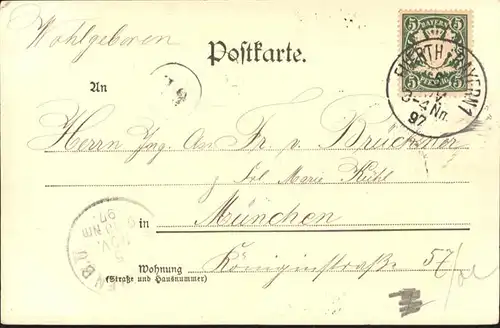 Wohlgeboren
Postkarte.
5 BAYERN 5
FUERTH (BAYERN) 1
NOV.
3-4 Nm.
97
An
Herrn Ing. Fr. v. Bruckner
Marie Kühl
in München
NOV.
97.
Wohnung Königinstraße 57/
(Straße und Hausnummer)